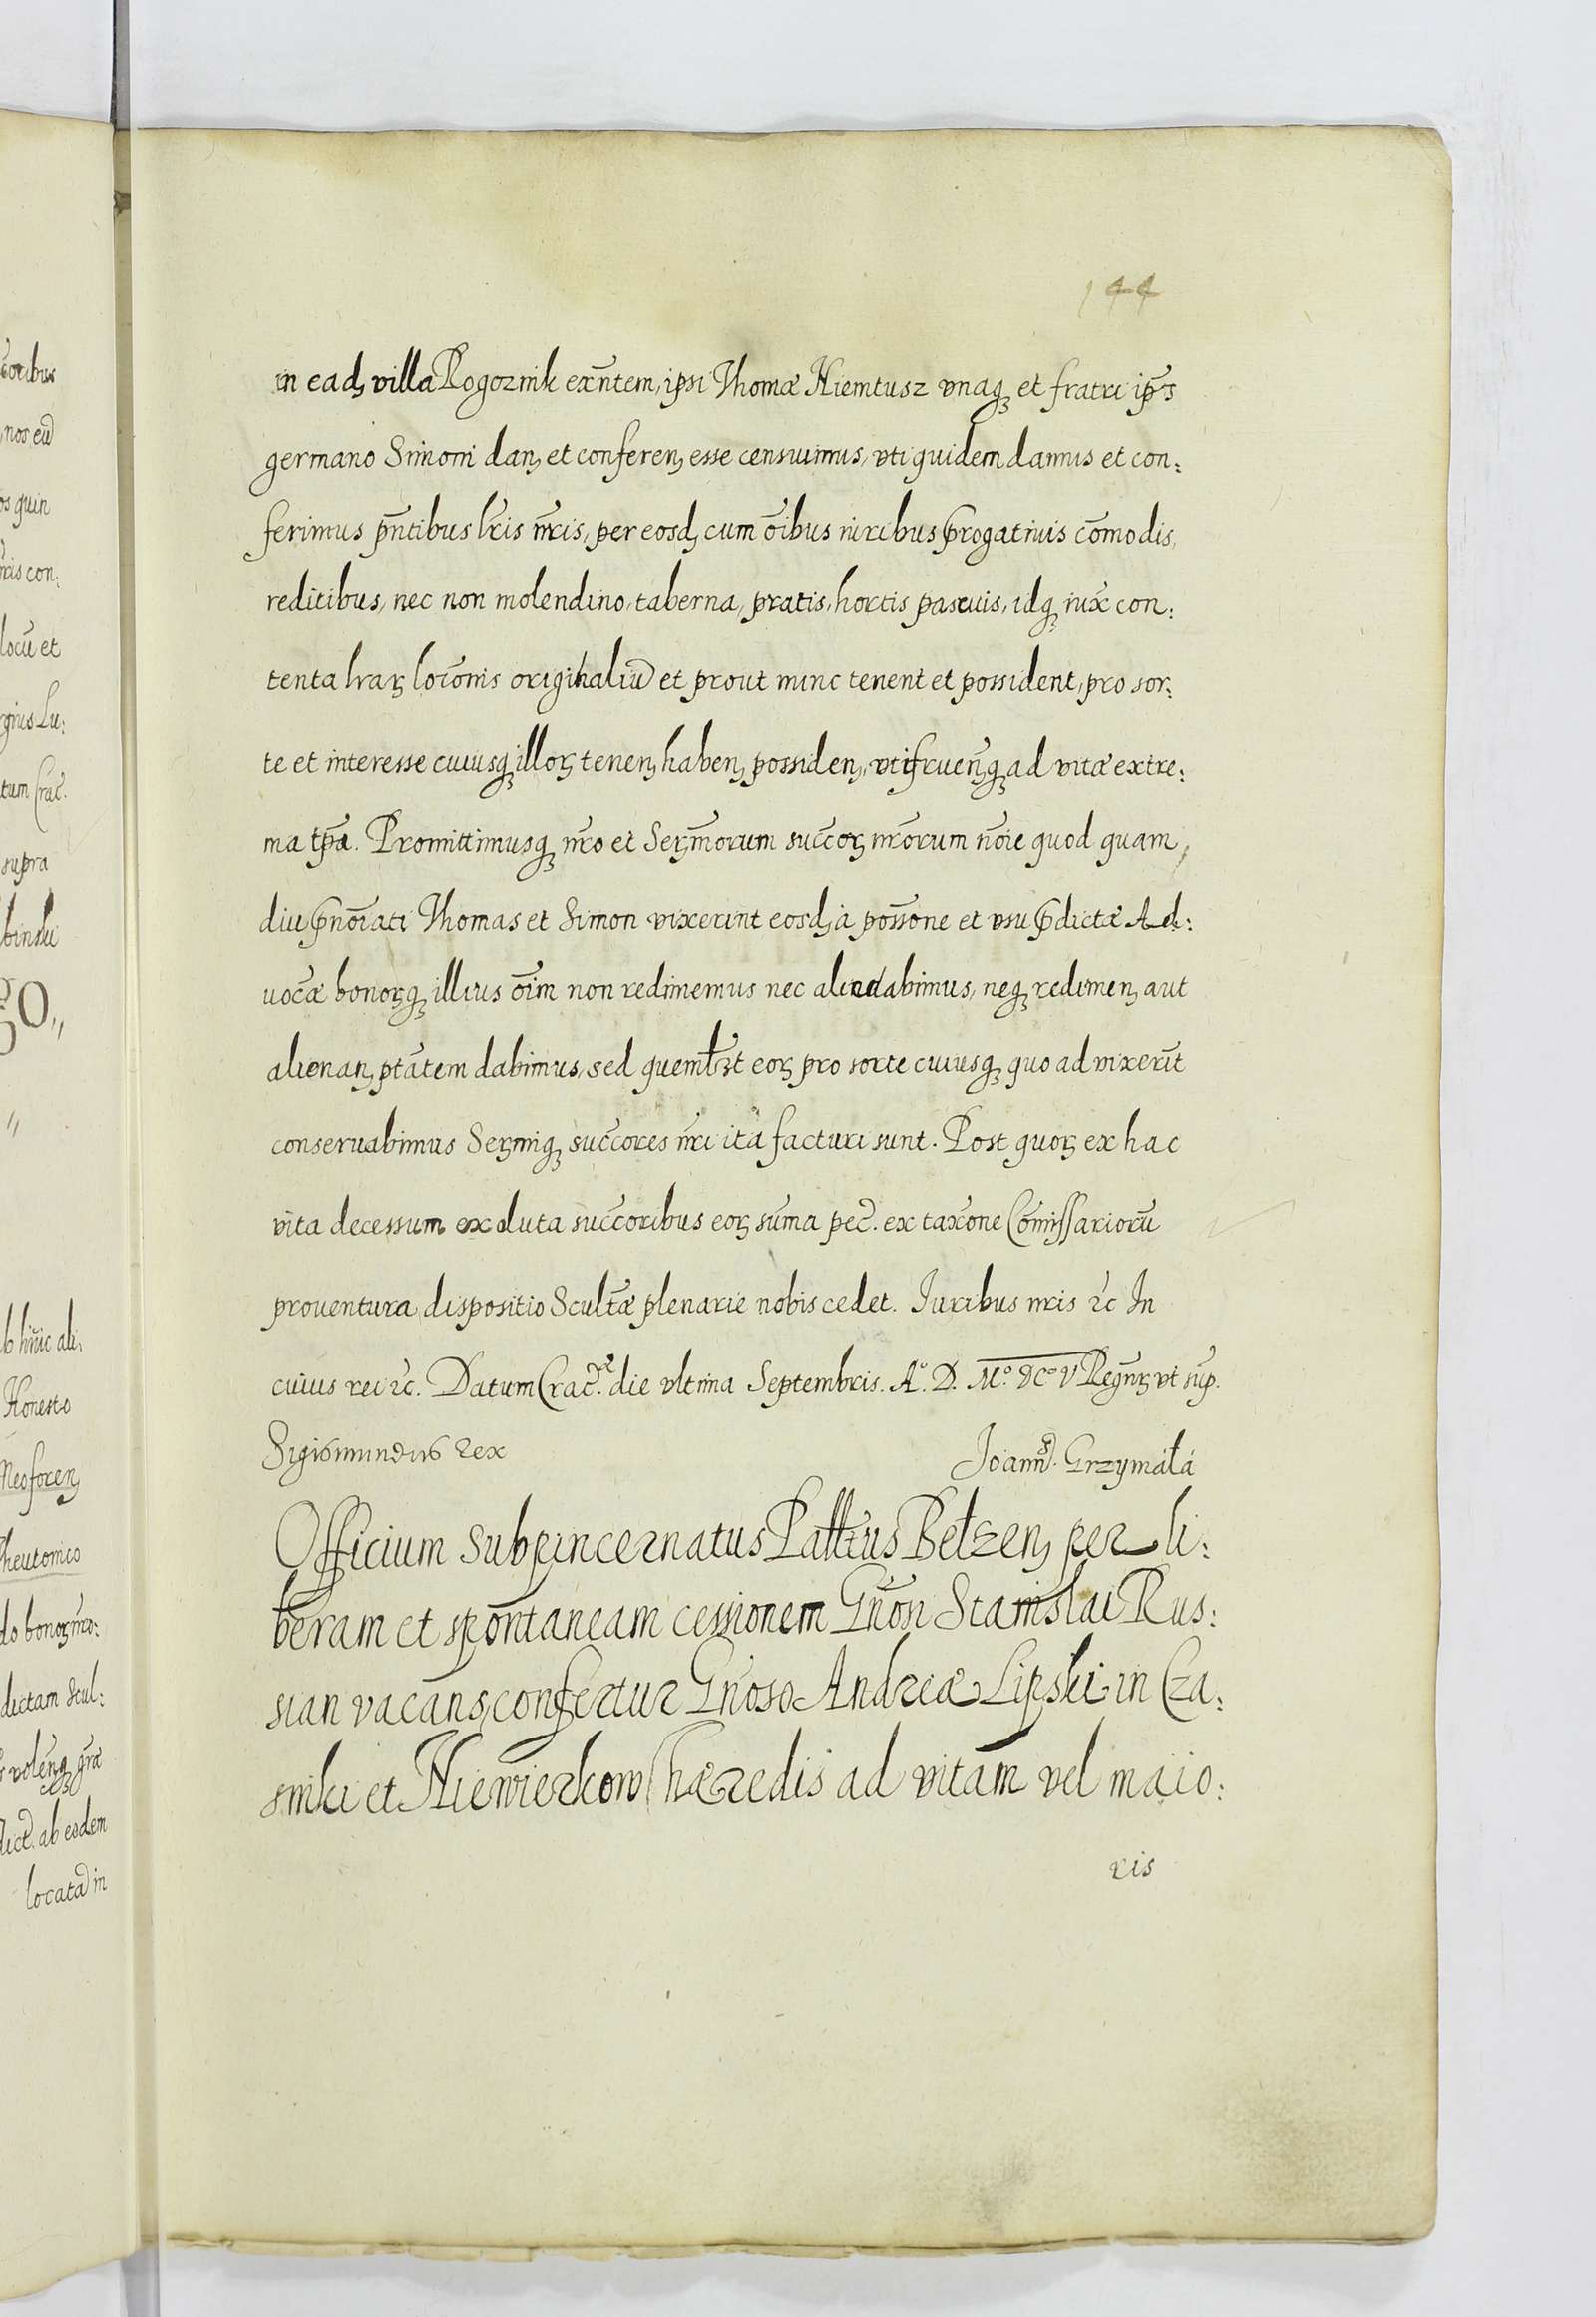 144
in ead, villa Rogoznik exñtem, ipsi Thomæ Niemtusz vnaq, et fratri ip̃s
germano Simoni dan, et conferen, esse censuimus, vti quidem damus et con:
ferimus p̃ntibus lr̃is nr̃is, per eosd, cum õibus iuribus p̃rogatiuis cõmodis,
reditibus, nec non molendino, taberna, pratis, hortis pascuis, idq, iux̃ con:
tenta lrar, locõnis originaliũ et prout nunc tenent et possident, pro sor:
te et interesse cuiusq, illor, tenen, haben, possiden, vtifruen̄q, ad vitæ extre:
ma tp̃a. Promittimusq, nr̃o et Ser,m̃orum succ̃or, nr̃orum nõie quod quam
diu p̃nõiati Thomas et Simon vixerint eosd, à possõne et vsu p̃dictæ Ad:
uoc̃æ bonorq, illius õim non redimemus nec alienabimus, neq, redimen, aut
alienan, ptãtem dabimus, sed quemlꝫt eor, pro sorte cuiusq, quo ad vixerĩt
conseruabimus Ser,miq, succ̃ores nr̃i ita facturi sunt. Post quor, ex hac
vita decessum exoluta succ̃oribus eor, sum̃a pec̃. ex tax̃one Com̃issariorũ
prouentura dispositio Scult̃æ plenarie nobis cedet. Iuribus nr̃is ꝛc In
cuius rei ꝛc. Datum Crac̃. die vltima Septembris. A°. D. M° DC° V Regñr, vt sup̃.
Sigismundus Rex
Joann̄. Grzymała
Officium subpincernatus Pallt̃us Bełzen, per li:
beram et spontaneam cessionem Gñosi Stanislai Rus:
sian vacans, confertur Gñoso Andreæ Lipski in Cza:
sniki et Niewierkow hæredis ad vitam vel maio:
ris